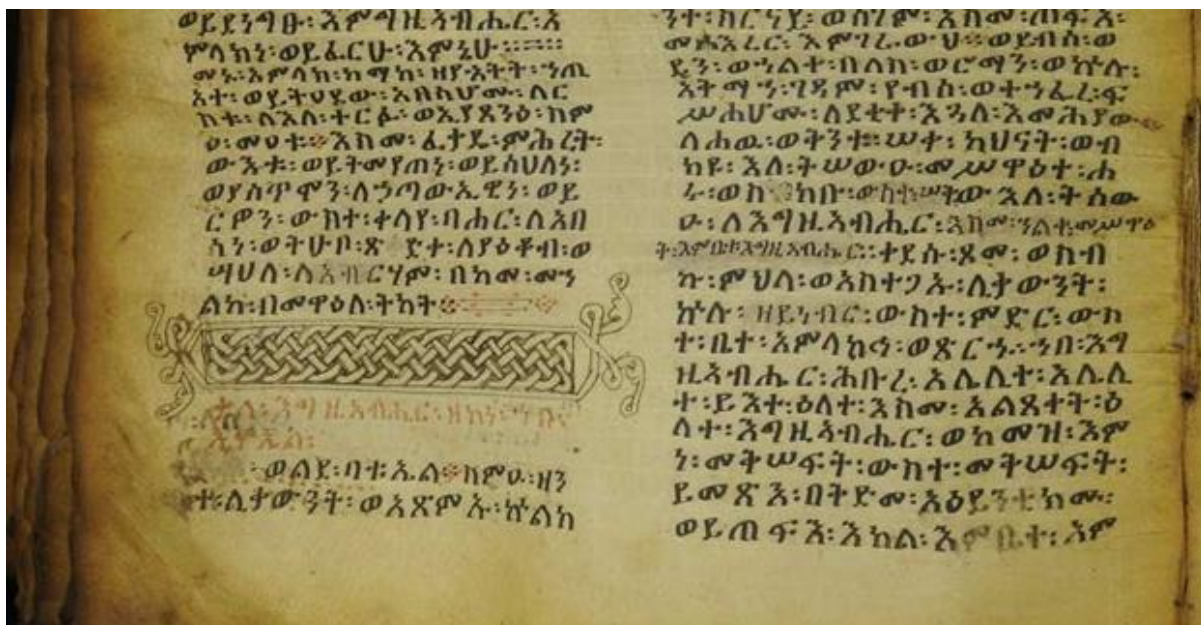 ወይደነግፁ፡እምግዚአብሔር፡አ
ምላክነ፡ወይፈርሁ፡እምኔሁ፡፡
መኑ፡አምላክ፡ከማከ፡ዘየአትት፡ኀጢ
አተ፡ወይትዐደው፡አበሳሆሙ፡ለር
ስቱ፡ለእለ፡ተርፉ፡ወኢያጸንዕ፡ስም
ዐ፡መዐተ፡እስመ፡ፈታዴ፡ምሕረት፡
ውእቱ፡ወይትመየጠነ፡ወይሣህለነ፡
ወያሰጥሞን፡ለኃጣውኢነ፡ወይ
ርዎን፡ውስተ፡ቀላየ፡ባሕር፡ለአበ
ሳነ፡ወትሁቦ፡ጽድቀ፡ለያዕቆብ፡ወ
ሣህለ፡ለአብርሃም፡በከመ፡መሐ
ልከ፡በመዋዕለ፡ትካት
ቃለ፡እግዚአብሔር፡ዘኮነ፡ኀበ፡
ኢዮኤል፡
ወልደ፡ባቱኤል፡ስምዑ፡ዘን
ተ፡ሊቃውንት፡ወአጽምኡ፡ኵልክ
ንተ፡ከርናየ፡ወሰገም፡እስመ፡ጠፍአ፡
መፅእረር፡እምገራውህ፡ወይብሰ፡ወ
ይን፡ወኀልቀ፡በለስ፡ወሮማን፡ወኵሉ፡
እትማነ፡ገዳም፡የብሰ፡ወተኀፈረ፡ፍ
ሥሐሆሙ፡ለደቂቀ፡እጓለ፡እመሕያው
ላሕዉ፡ወቅንቱ፡ሠቀ፡ካህናት፡ወብ
ክዩ፡እለ፡ትሠውዑ፡መሥዋዕተ፡ሐ
ሩ፡ወስክቡ፡ውስተ፡ሠቅው፡እለ፡ትሰው
ዑ፡ለእግዚአብሔር፡እስመ፡ኀልቀ፡መሥዋዕ
ት፡እምቤተ፡እግዚአብሔር፡ቀደሱ፡ጾመ፡ወስብ
ኩ፡ምህላ፡ወአስተጋእኡ፡ሊቃውንት፡
ኵሉ፡ዘይነብር፡ውስተ፡ምድር፡ውስ
ተ፡ቤተ፡አምላክሙ፡ወጽርኁ፡ኀበ፡እግ
ዚአብሔር፡ሕቡረ፡አሌሊተ፡አሌሊ
ተ፡ይእተ፡ዕለተ፡እስመ፡አልጸቀት፡ዕ
ለተ፡እግዚአብሔር፡ወከመዝ፡እም
ነ፡መቅሠፍት፡ውስተ፡መቅሠፍት፡
ይመጽእ፡በቅድመ፡አዕይንቲክሙ፡
ወይጠፍእ፡እክል፡እምቤተ፡አም